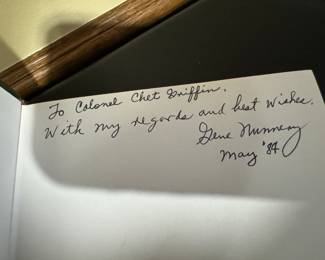 To Colonel Chet Griffin.
With my regards and best wishes.
Gene Nunnery
May '84